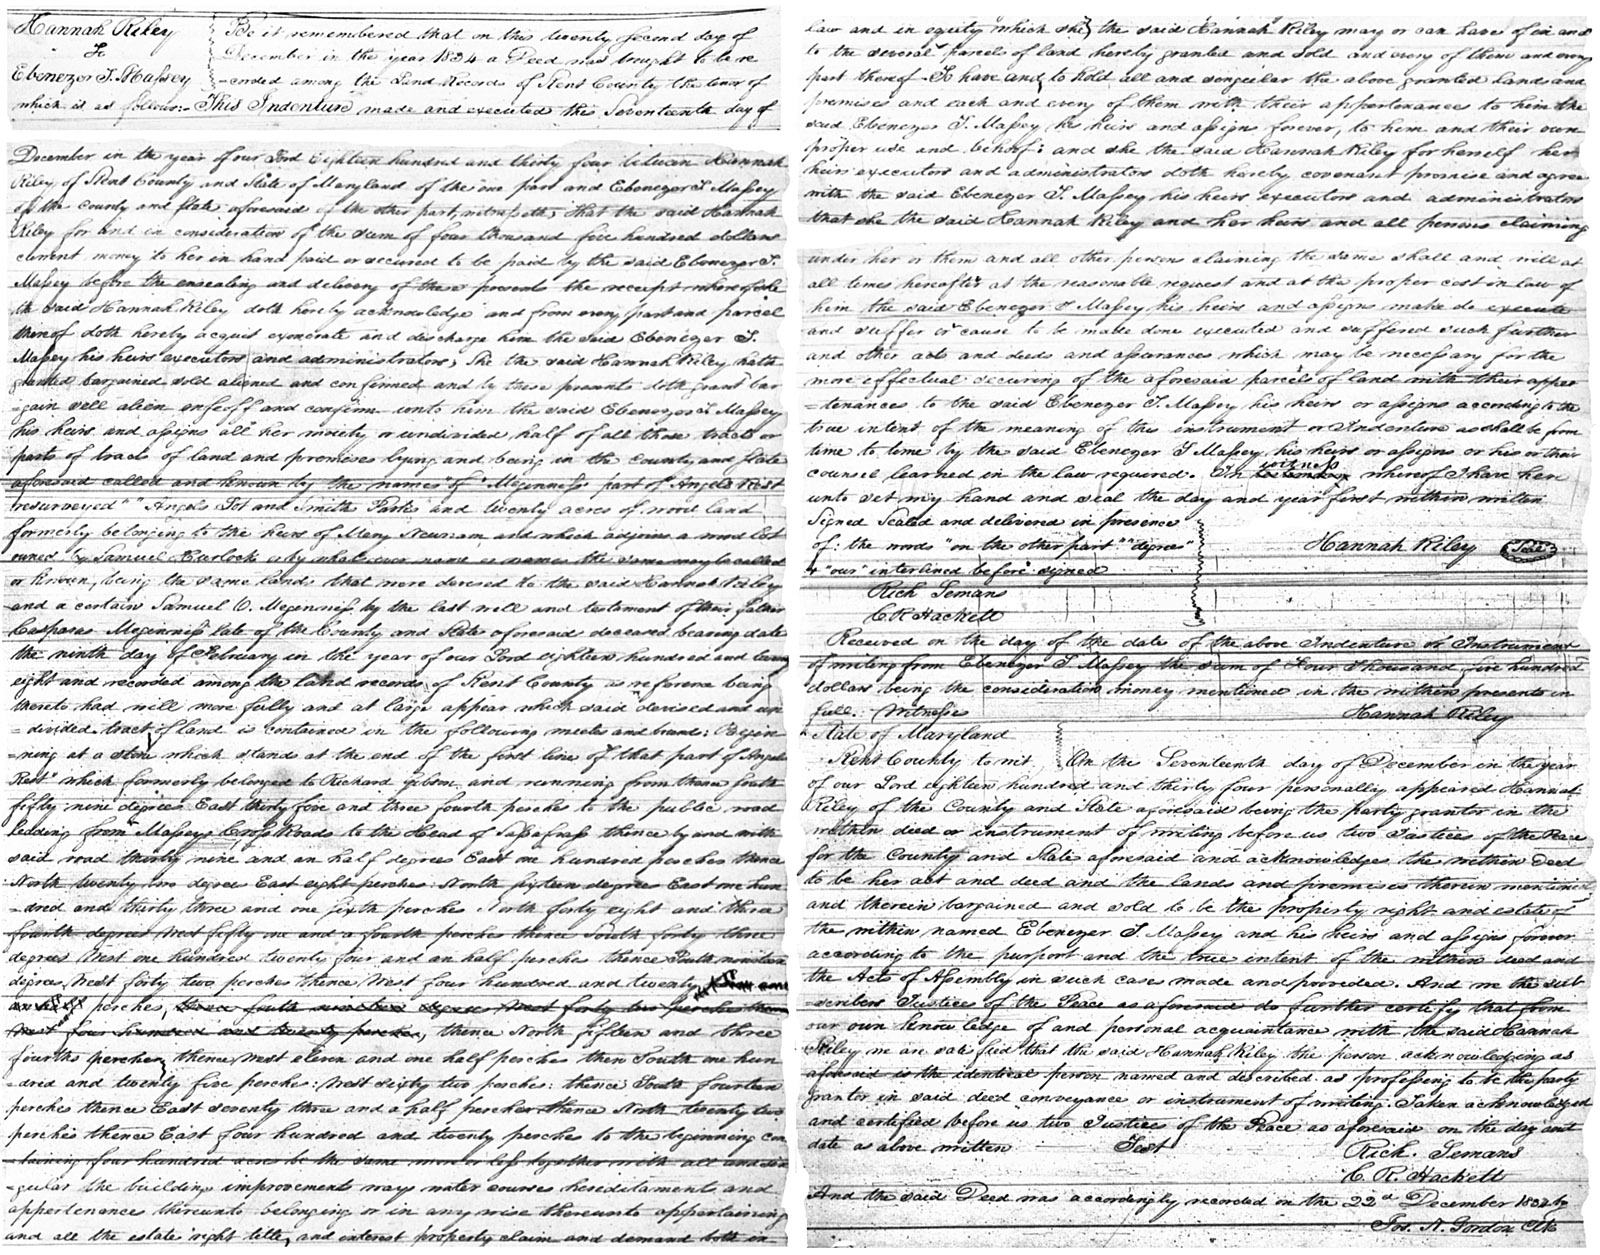 Hannah Riley
To
Ebenezer T. Massey
Be it remembered that on this twenty second day of
December in the year 1834 a Deed was brought to be re
=corded among the Land Records of Kent County the tenor of
which is as follows. This Indenture made and executed this Seventeenth day of
December in the year of our Lord Eighteen hundred and thirty four between Hannah
Riley of Kent County and State of Maryland of the one part and Ebenezer T Massey
of the county and State aforesaid of the other part, witnesseth, that the said Hannah
Riley for and in consideration of the sum of four thousand five hundred dollars
current money to her in hand paid or secured to be paid by the said Ebenezer T.
Massey before the ensealing and delivery of these presents the receipt whereof she
th said Hannah Riley doth hereby acknowledge and from every part and parcel
thereof doth hereby acquit exonerate and discharge him the said Ebenezer T.
Massey his heirs executors and administrators, She the said Hannah Riley hath
granted bargained sold aliened and confirmed and by these presents doth grant bar
=gain sell alien enfeoff and confirm unto him the said Ebenezer T Massey
his heirs and assigns all her moiety or undivided half of all those tracts or
parts of tracts of land and premises lying and being in the County and State
aforesaid called and known by the names of "Meginness part of Angels Rest
resurveyed" "Angels Lot and Smith Park" and twenty acres of wood land
formerly belonging to the heirs of Mary Newnam and which adjoins a wood lot
owned by Samuel Hurlock or by whatever name or names the same may be called
or known, being the same lands that were devised to the said Hannah Riley
and a certain Samuel O. Meginniss by the last will and testament of their father
Casparas Meginniss late of the County and State aforesaid deceased bearing date
the ninth day of February in the year of our Lord eighteen hundred and twenty
eight and recorded among the land records of Kent County as reference being
thereto had will more fully and at large appear which said devised and un
=divided tract of land is contained in the following meets and bounds: Begin
=ning at a stone which stands at the end of the first line of that part of Angels
Rest" which formerly belonged to Richard Gibson and running from thence South
fifty nine degrees East thirty five and three fourth perches to the public road
leading from Masseys Cross Roads to the Head of Sassafrass thence by and with
said road thirty nine and an half degrees East one hundred perches thence
North twenty two degrees East eight perches: North fifteen degrees East one hun
=dred and thirty three and one sixth perches North forty eight and three
fourth degrees West fifty one and a fourth perches thence South forty three
degrees West one hundred twenty four and an half perches thence South nineteen
degrees West forty two perches thence West four hundred and twenty
perches, thence South nineteen degrees West forty two perches thence
West four hundred and twenty perches, thence North fifteen and three
fourths perches, thence West eleven and one half perches then South one hun
=dred and twenty five perches: West sixty two perches: thence South fourteen
perches thence East seventy three and a half perches thence North twenty two
perches thence East four hundred and twenty perches to the beginning con
=taining four hundred acres be the same more or less together with all and sin
=gular the building improvements ways water courses hereditaments and
appertenance thereunto belonging or in any wise thereunto appertaining
and all the estate right title, and interest property claim and demand both in
law and in equity which she, the said Hannah Riley may or can have of in and
to the several parcels of land hereby granted and sold and every of them and every
part thereof To have and to hold all and singular the above granted lands and
premises and each and every of them with their appertenances to him the
said Ebenezer T. Massey his heirs and assigns forever, to him and their own
proper use and behoof: and she the said Hannah Riley for herself her
heirs executors and administrators doth hereby covenant promise and agree
with the said Ebenezer T. Massey his heirs executors and administrators
that she the said Hannah Riley and her heirs and all persons claiming
under her or them and all other person claiming the same shall and will at
all times hereafter at the reasonable request and at the proper cost in law of
him the said Ebenezer T Massey his heirs and assigns make do execute
and suffer or cause to be made done executed and suffered such further
and other acts and deeds and assurances which may be necessary for the
more effectual securing of the aforesaid parcels of land with their apper
=tenances to the said Ebenezer T. Massey his heirs or assigns according to the
true intent of the meaning of this instrument or Indenture as shall be from
time to time by the said Ebenezer T Massey his heirs or assigns or his or their
counsel learned in the law required. In witness whereof I have here
unto set my hand and seal the day and year first within written
Signed Sealed and delivered in presence
of: the words "on the other part" "degrees"
& "our" interlined before signed
Hannah Riley Seal
Rich Semans
C. R Hackett
Received on the day of the date of the above Indenture or Instrument
of writing from Ebenezer T Massey the sum of Four thousand five hundred
dollars being the consideration money mentioned in the within presents in
full. Witness Hannah Riley
State of Maryland
Kent County to wit. On the Seventeenth day of December in the year
of our Lord eighteen hundred and thirty four personally appeared Hannah
Riley of the County and State aforesaid being the party grantor in the
within deed or instrument of writing before us two Justices of the Peace
for the County and State aforesaid and acknowledges the within Deed
to be her act and deed and the lands and premises therein mentioned
and therein bargained and sold to be the property right and estate of
the within named Ebenezer T. Massey and his heirs and assigns forever
according to the purport and the true intent of the within deed and
the Acts of Assembly in such case made and provided. And we the sub
=scribers Justices of the Peace as aforesaid do further certify that from
our own knowledge of and personal acquaintance with the said Hannah
Riley we are satisfied that the said Hannah Riley the person acknowledging as
aforesaid is the identical person named and described as professing to be the party
grantor in said deed conveyance or instrument of writing. Taken acknowledged
and certified before us two Justices of the Peace as aforesaid on the day and
date as above written Test Rich. Semans
C. R. Hackett
And the said Deed was accordingly recorded in the 22d December 1834 by
Jos. N. Gordon Clk